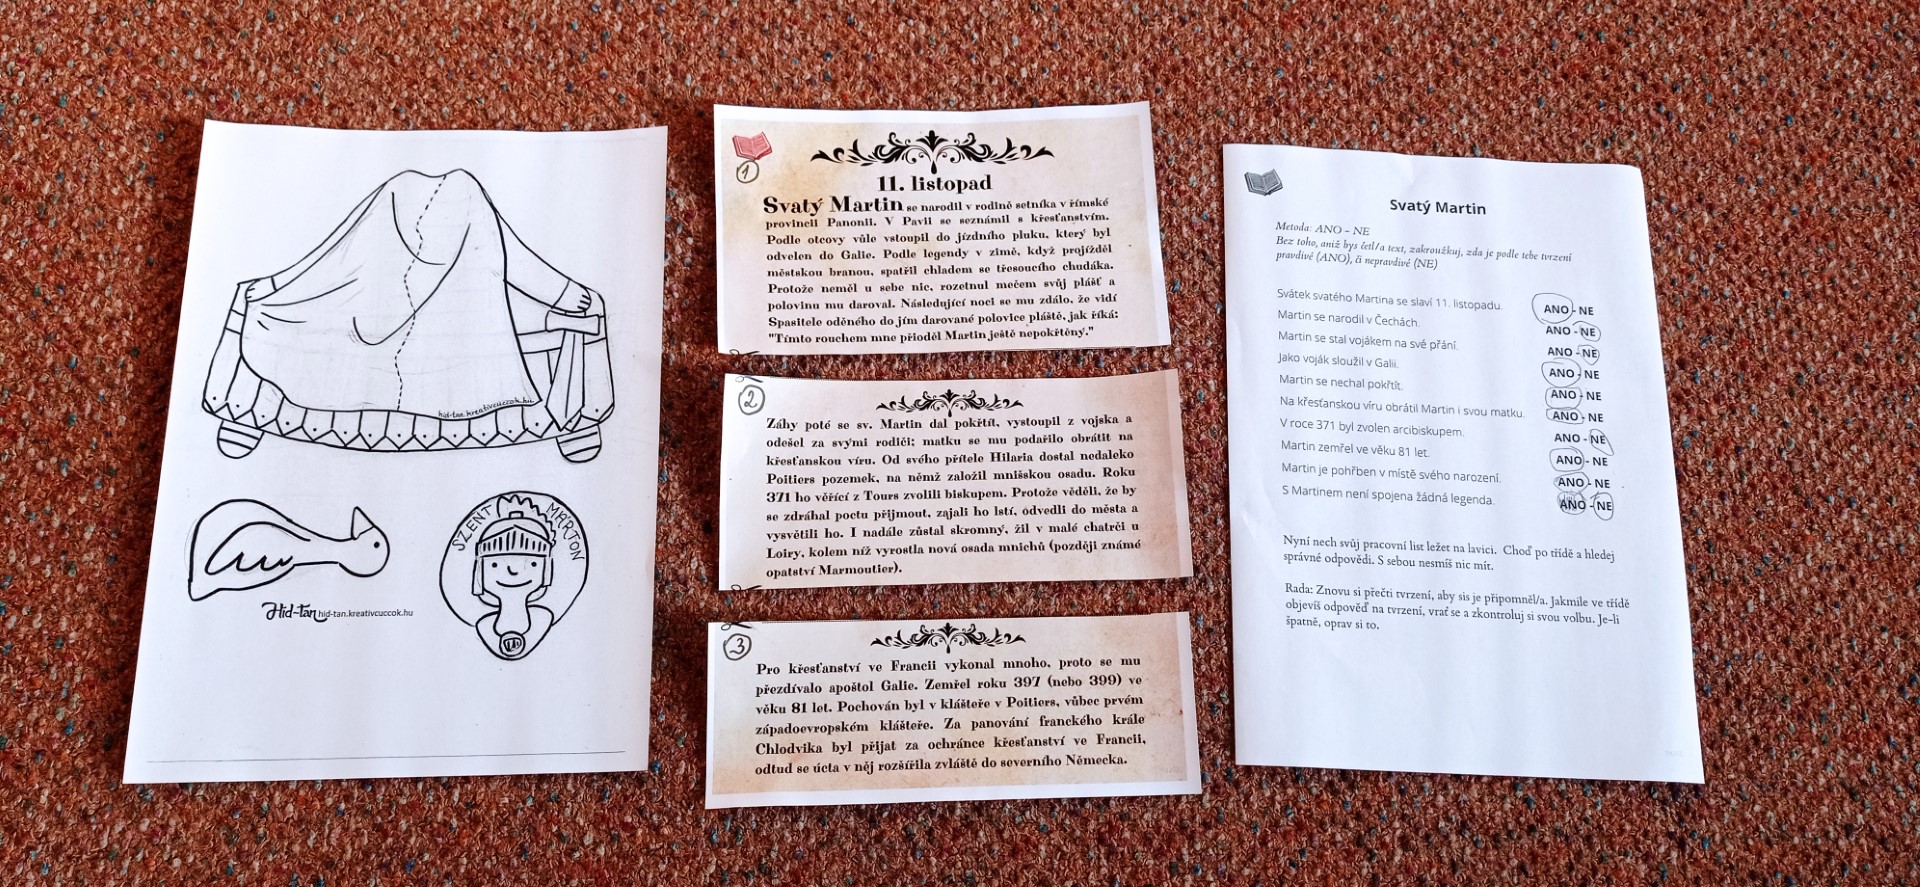 hid-tan.kreativcuccok.hu
SZENT MÁRTON
Hid-tan hid-tan.kreativcuccok.hu
1
11. listopad
Svatý Martin se narodil v rodině setníka v římské
provincii Panonii. V Pavii se seznámil s křesťanstvím.
Podle otcovy vůle vstoupil do jízdního pluku, který byl
odvelen do Galie. Podle legendy v zimě, když projížděl
městskou branou, spatřil chladem se třesoucího chudáka.
Protože neměl u sebe nic, rozetnul mečem svůj plášť a
polovinu mu daroval. Následující noci se mu zdálo, že vidí
Spasitele oděného do jím darované polovice pláště, jak říká:
"Tímto rouchem mne přioděl Martin ještě nepokřtěný."
2
Záhy poté se sv. Martin dal pokřtít, vystoupil z vojska a
odešel za svými rodiči; matku se mu podařilo obrátit na
křesťanskou víru. Od svého přítele Hilaria dostal nedaleko
Poitiers pozemek, na němž založil mnišskou osadu. Roku
371 ho věřící z Tours zvolili biskupem. Protože věděli, že by
se zdráhal poctu přijmout, zajali ho lstí, odvedli do města a
vysvětili ho. I nadále zůstal skromný, žil v malé chatrči u
Loiry, kolem níž vyrostla nová osada mnichů (později známé
opatství Marmoutier).
3
Pro křesťanství ve Francii vykonal mnoho, proto se mu
přezdívalo apoštol Galie. Zemřel roku 397 (nebo 399) ve
věku 81 let. Pochován byl v klášteře v Poitiers, vůbec prvém
západoevropském klášteře. Za panování franckého krále
Chlodvika byl přijat za ochránce křesťanství ve Francii,
odtud se úcta v něj rozšířila zvláště do severního Německa.
Svatý Martin
Metoda: ANO - NE
Bez toho, aniž bys četl/a text, zakroužkuj, zda je podle tebe tvrzení
pravdivé (ANO), či nepravdivé (NE)
Svátek svatého Martina se slaví 11. listopadu. ANO - NE
Martin se narodil v Čechách. ANO - NE
Martin se stal vojákem na své přání. ANO - NE
Jako voják sloužil v Galii. ANO - NE
Martin se nechal pokřtít. ANO - NE
Na křesťanskou víru obrátil Martin i svou matku. ANO - NE
V roce 371 byl zvolen arcibiskupem. ANO - NE
Martin zemřel ve věku 81 let. ANO - NE
Martin je pohřben v místě svého narození. ANO - NE
S Martinem není spojena žádná legenda. ANO - NE
Nyní nech svůj pracovní list ležet na lavici. Choď po třídě a hledej
správné odpovědi. S sebou nesmíš nic mít.
Rada: Znovu si přečti tvrzení, aby sis je připomněl/a. Jakmile ve třídě
objevíš odpověď na tvrzení, vrať se a zkontroluj si svou volbu. Je-li
špatně, oprav si to.